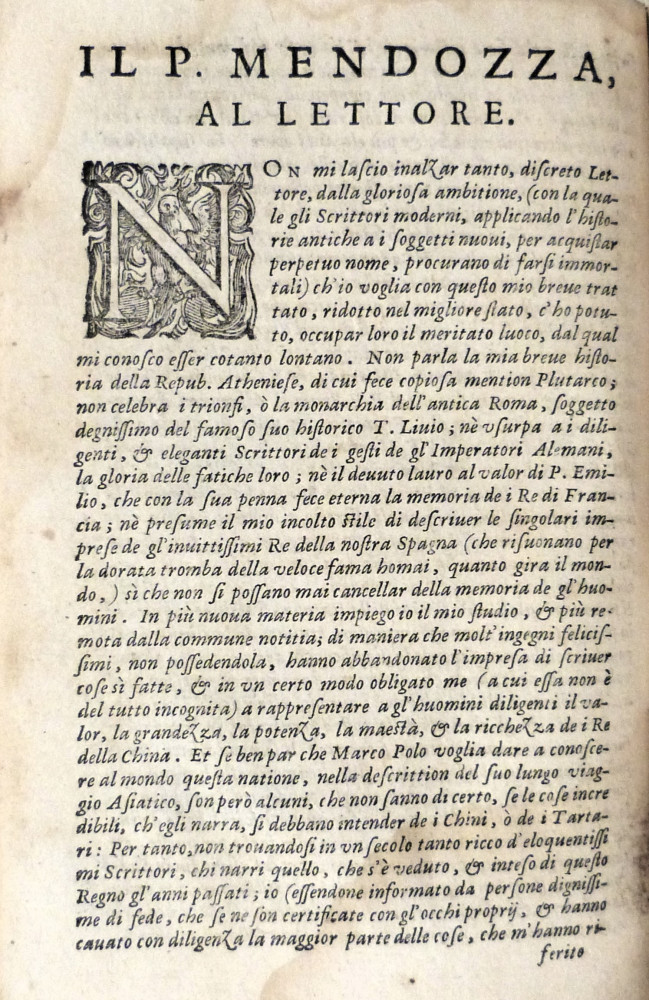 IL P. MENDOZZA,
AL LETTORE.
NON mi laſcio inalzar tanto, diſcreto Let-
tore, dalla glorioſa ambitione, (con la qua-
le gli Scrittori moderni, applicando l'hiſto-
rie antiche a i ſoggetti nuoui, per acquiſtar
perpetuo nome, procurano di farſi immor-
tali) ch'io voglia con queſto mio breue trat
tato, ridotto nel migliore ſtato, c'ho potu-
to, occupar loro il meritato luoco, dal qual
mi conoſco eſſer cotanto lontano. Non parla la mia breue hiſto-
ria della Repub. Athenieſe, di cui fece copioſa mention Plutarco;
non celebra i trionfi, ò la monarchia dell'antica Roma, ſoggetto
degniſſimo del famoſo ſuo hiſtorico T. Liuio; nè vſurpa a i dili-
genti, & eleganti Scrittori de i geſti de gl'Imperatori Alemani,
la gloria delle fatiche loro; nè il deuuto lauro al valor di P. Emi-
lio, che con la ſua penna fece eterna la memoria de i Re di Fran-
cia; nè preſume il mio incolto ſtile di deſcriuer le ſingolari im-
preſe de gl'inuittiſſimi Re della noſtra Spagna (che riſuonano per
la dorata tromba della veloce fama homai, quanto gira il mon-
do,) sì che non ſi poſſano mai cancellar della memoria de gl'huo-
mini. In più nuoua materia impiego io il mio ſtudio, & più re-
mota dalla commune notitia; di maniera che molt'ingegni feliciſ-
ſimi, non poſſedendola, hanno abbandonato l'impreſa di ſcriuer
coſe sì fatte, & in vn certo modo obligato me (a cui eſſa non è
del tutto incognita) a rappreſentare a gl'huomini diligenti il va-
lor, la grandezza, la potenza, la maeſtà, & la ricchezza de i Re
della China. Et ſe ben par che Marco Polo voglia dare a conoſce-
re al mondo queſta natione, nella deſcrittion del ſuo lungo viag-
gio Aſiatico, ſon però alcuni, che non ſanno di certo, ſe le coſe incre
dibili, ch'egli narra, ſi debbano intender de i Chini, ò de i Tarta-
ri: Per tanto, non trouandoſi in vn ſecolo tanto ricco d'eloquentiſſi
mi Scrittori, chi narri quello, che s'è veduto, & inteſo di queſto
Regno gl'anni paſſati; io (eſſendone informato da perſone digniſſi-
me di fede, che ſe ne ſon certificate con gl'occhi proprij, & hanno
cauato con diligenza la maggior parte delle coſe, che m'hanno ri-
ferito